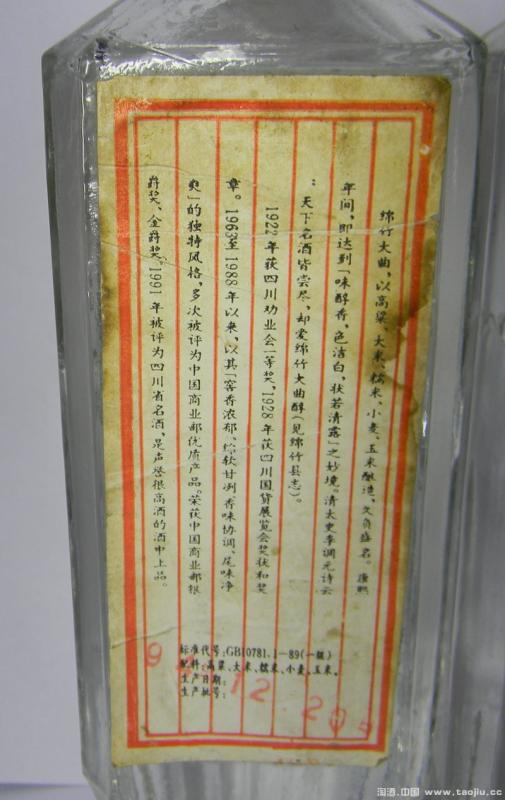 绵竹大曲，以高粱、大米、糯米、小麦、玉米酿造，久负盛名。康熙
年间，即达到「味醇香，色洁白，状若清露」之妙境。清太史李调元诗云
：天下名酒皆尝尽，却爱绵竹大曲醇（见绵竹县志）。
1922年获四川劝业会一等奖，1928年获四川国货展览会奖状和奖
章。1963至1988年以来，以其「窖香浓郁、绵软甘冽、香味协调、尾味净
爽」的独特风格，多次被评为中国商业部优质产品。荣获中国商业部银
爵奖、金爵奖。1991年被评为四川省名酒，是声誉很高酒的酒中上品。
标准代号：GB10781.1—89（一级）
配料：高粱、大米、糯米、小麦、玉米。
生产日期：
生产批号：
9 12 20
淘酒.中国 www.taojiu.cc